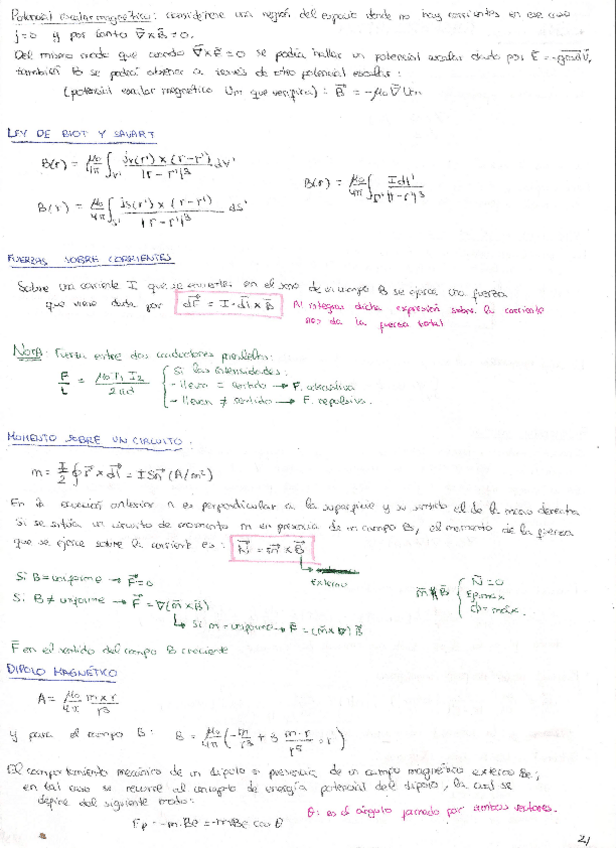 Potencial escalar magnético: considérese una región del espacio donde no hay corrientes en ese caso
j=0 y por tanto ∇×B=0.
Del mismo modo que cuando ∇×E=0 se podía hallar un potencial escalar dado por E=-grad V,
también B se podrá obtener a través de otro potencial escalar:
(potencial escalar magnético Um que verifica): B = -μ₀ ∇Um
LEY DE BIOT Y SAVART
B(r) = μ₀/4π ∫v' jv(r') × (r-r')/|r-r'|³ dv'
B(r) = μ₀/4π ∫Γ' Idl'/|r-r'|³
B(r) = μ₀/4π ∫s' js(r') × (r-r')/|r-r'|³ ds'
FUERZAS SOBRE CORRIENTES
Sobre una corriente I que se encuentra en el seno de un campo B se ejerce una fuerza
que viene dada por dF = I·dl×B Al integrar dicha expresión sobre la corriente
nos da la fuerza total
NOTA: Fuerza entre dos conductores paralelos:
F/L = μ₀ I₁ I₂/2πd { Si las intensidades:
- llevan = sentido → F. atractiva
- llevan ≠ sentido → F. repulsiva.
MOMENTO SOBRE UN CIRCUITO:
m = I/2 ∮ r × dl = I S n (A/m²)
En la ecuación anterior n es perpendicular a la superficie y su sentido el de la mano derecha
Si se sitúa un circuito de momento m en presencia de un campo B, el momento de la fuerza
que se ejerce sobre la corriente es: N = m × B
externo
Si B=uniforme → F=0
Si B ≠ uniforme → F = ∇(m×B)
↳ Si m=uniforme → F = (m×∇) B
N=0
Ep max
Ep = máx.
F en el sentido del campo B creciente
DIPOLO MAGNÉTICO
A = μ₀/4π m×r/r³
y para el campo B: B = μ₀/4π (-m/r³ + 3 m·r/r⁵ · r)
El comportamiento mecánico de un dipolo en presencia de un campo magnético externo Be;
en tal caso se recurre al concepto de energía potencial del dipolo, la cual se
define del siguiente modo:
θ: es el ángulo formado por ambos vectores.
Ep = -m·Be = -mBe cos θ
21